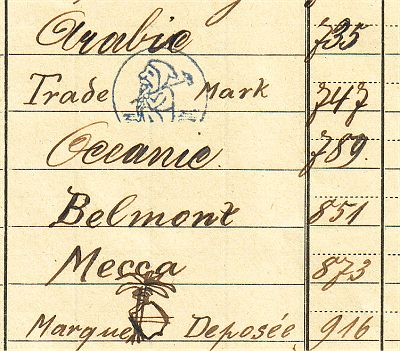 Arabic 735
Trade Mark 747
Oceanic 789
Belmont 851
Mecca 873
Marque Deposée 916